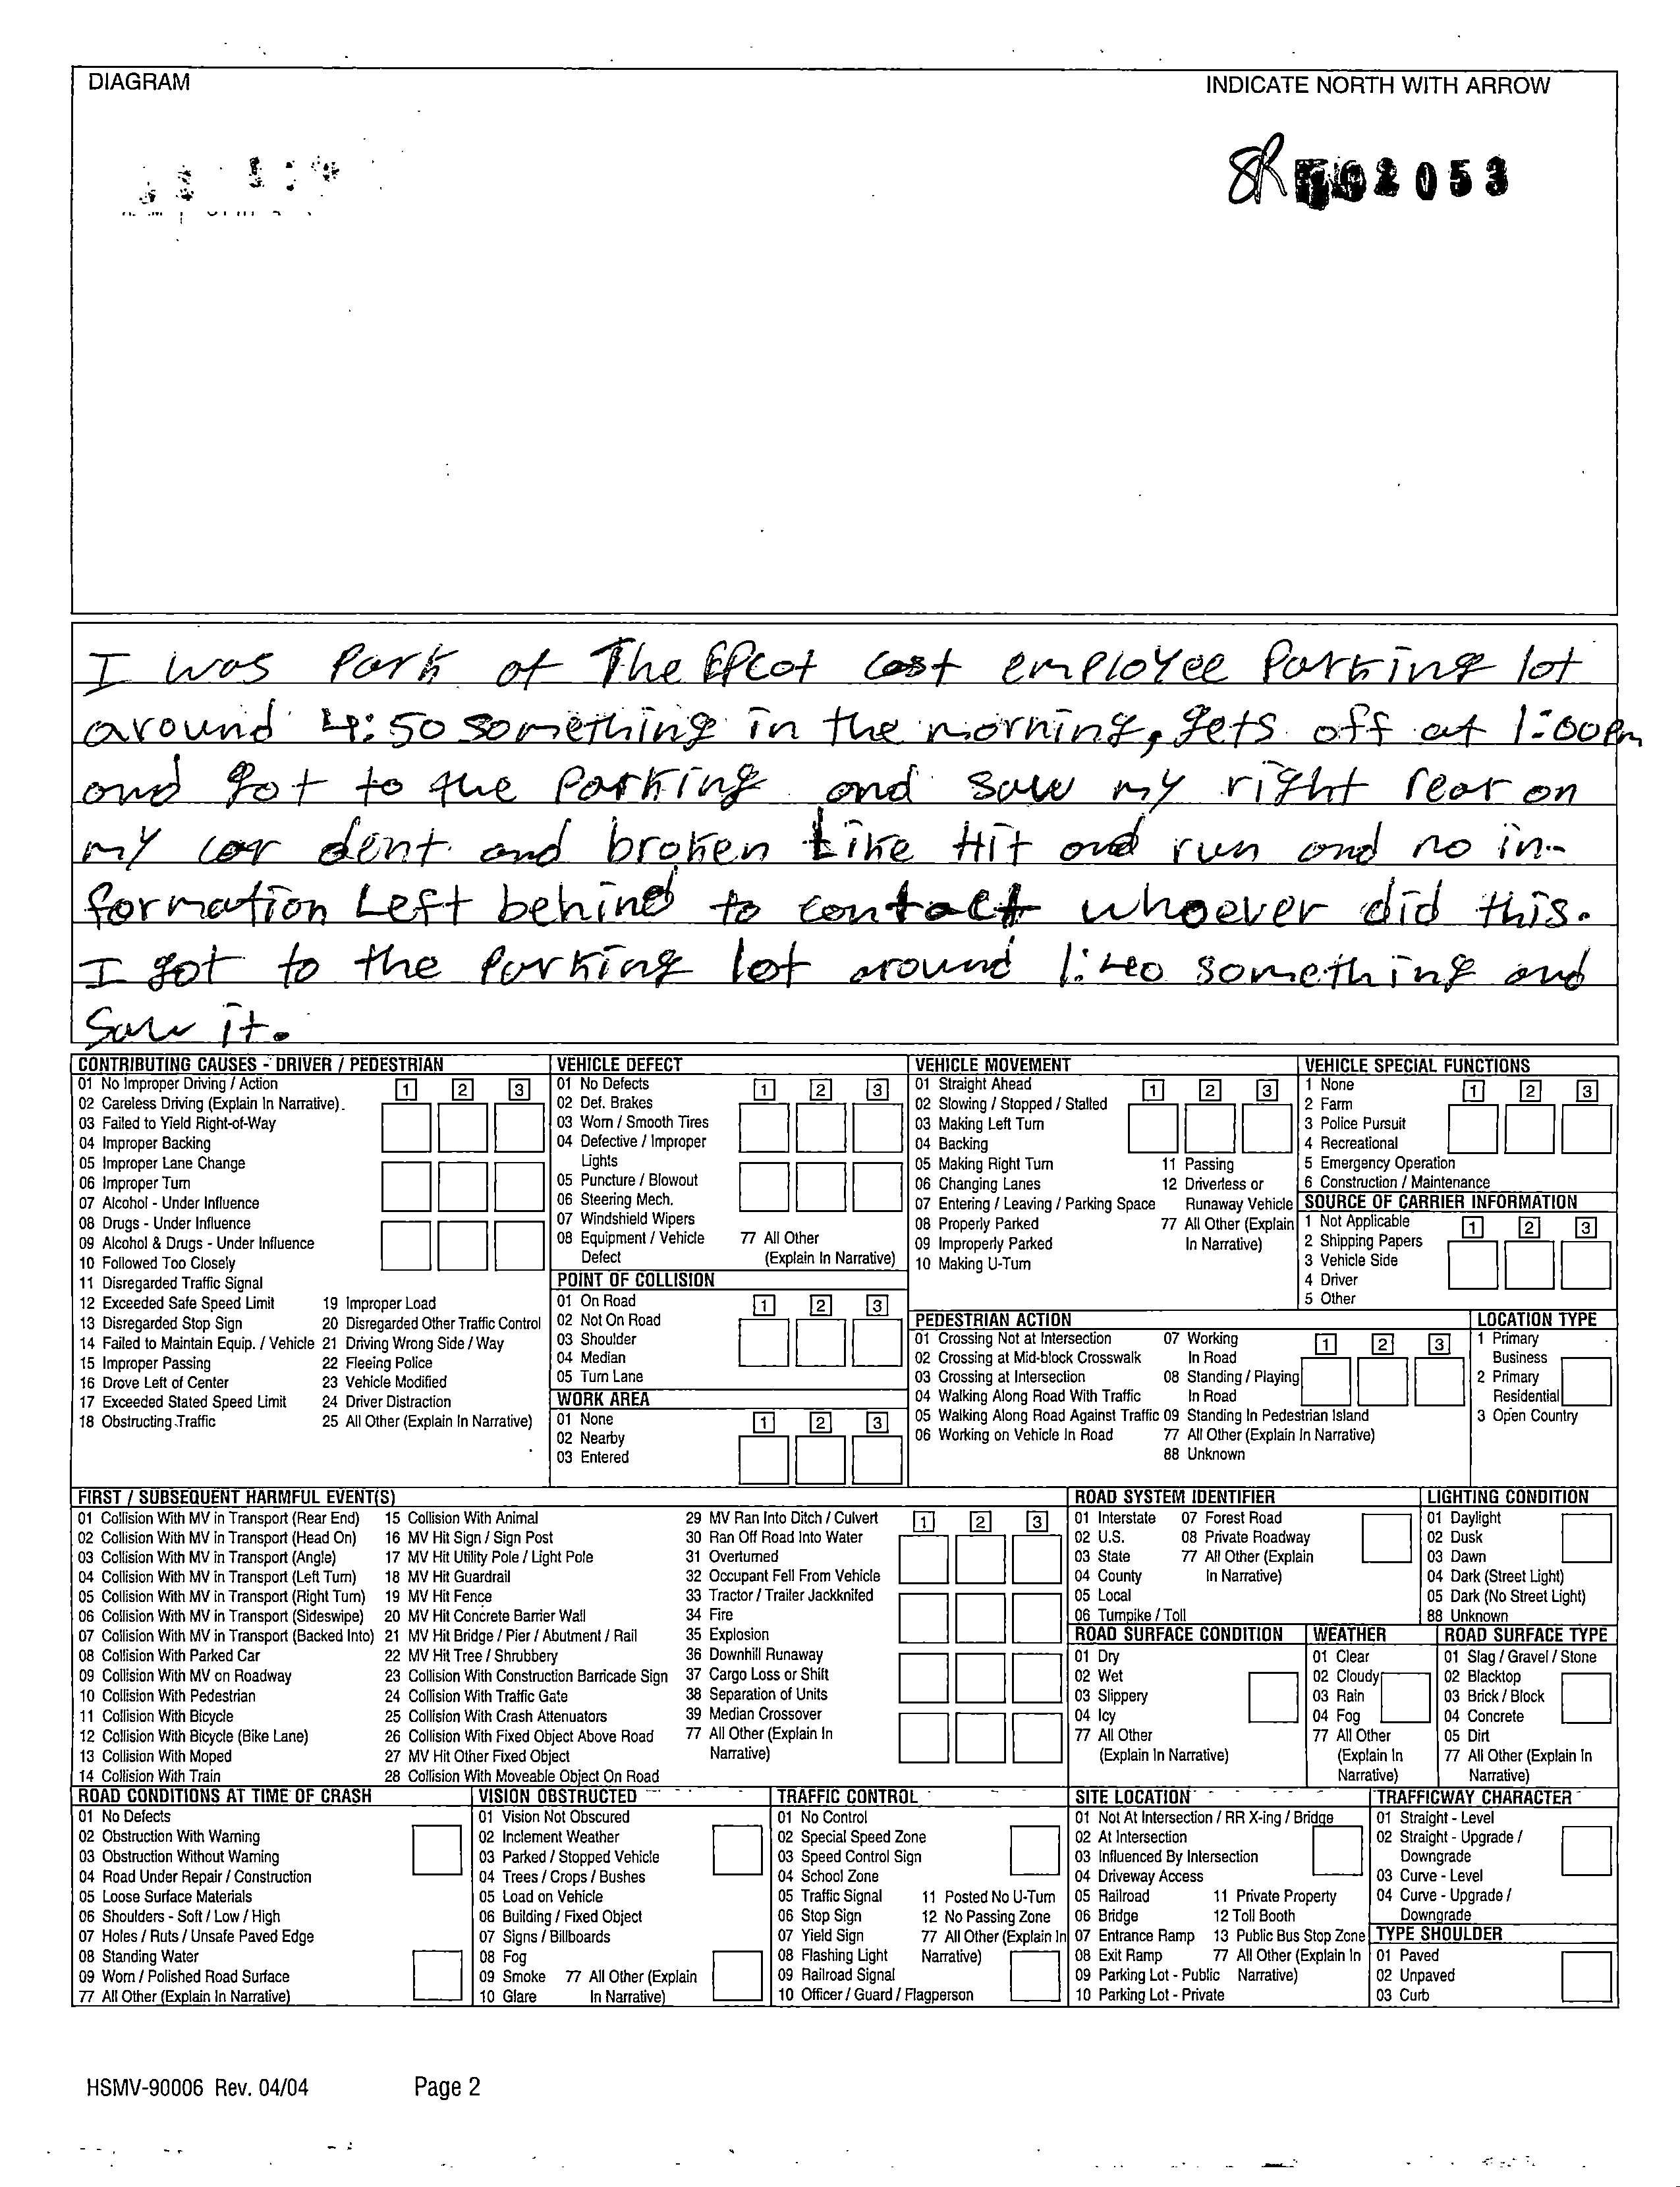 DIAGRAM
INDICATE NORTH WITH ARROW
2053
I was Park at The EPcot cast employee Parking lot
around 4:50 something in the morning, gets off at 1:00Pm
and got to the Parking and saw my right rear on
my car dent and broken Like Hit and run and no in-
formation Left behind to contact whoever did this.
I got to the Parking lot around 1:40 something and
Saw it.
CONTRIBUTING CAUSES - DRIVER / PEDESTRIAN
1 2 3
01 No Improper Driving / Action
02 Careless Driving (Explain In Narrative)
03 Failed to Yield Right-of-Way
04 Improper Backing
05 Improper Lane Change
06 Improper Turn
07 Alcohol - Under Influence
08 Drugs - Under Influence
09 Alcohol & Drugs - Under Influence
10 Followed Too Closely
11 Disregarded Traffic Signal
12 Exceeded Safe Speed Limit
13 Disregarded Stop Sign
14 Failed to Maintain Equip. / Vehicle
15 Improper Passing
16 Drove Left of Center
17 Exceeded Stated Speed Limit
18 Obstructing Traffic
19 Improper Load
20 Disregarded Other Traffic Control
21 Driving Wrong Side / Way
22 Fleeing Police
23 Vehicle Modified
24 Driver Distraction
25 All Other (Explain In Narrative)
VEHICLE DEFECT
1 2 3
01 No Defects
02 Def. Brakes
03 Worn / Smooth Tires
04 Defective / Improper
Lights
05 Puncture / Blowout
06 Steering Mech.
07 Windshield Wipers
08 Equipment / Vehicle
Defect
77 All Other
(Explain In Narrative)
POINT OF COLLISION
1 2 3
01 On Road
02 Not On Road
03 Shoulder
04 Median
05 Turn Lane
WORK AREA
1 2 3
01 None
02 Nearby
03 Entered
VEHICLE MOVEMENT
1 2 3
01 Straight Ahead
02 Slowing / Stopped / Stalled
03 Making Left Turn
04 Backing
05 Making Right Turn
06 Changing Lanes
07 Entering / Leaving / Parking Space
08 Properly Parked
09 Improperly Parked
10 Making U-Turn
11 Passing
12 Driverless or
Runaway Vehicle
77 All Other (Explain
In Narrative)
VEHICLE SPECIAL FUNCTIONS
1 2 3
1 None
2 Farm
3 Police Pursuit
4 Recreational
5 Emergency Operation
6 Construction / Maintenance
SOURCE OF CARRIER INFORMATION
1 2 3
1 Not Applicable
2 Shipping Papers
3 Vehicle Side
4 Driver
5 Other
PEDESTRIAN ACTION
1 2 3
01 Crossing Not at Intersection
02 Crossing at Mid-block Crosswalk
03 Crossing at Intersection
04 Walking Along Road With Traffic
05 Walking Along Road Against Traffic
06 Working on Vehicle In Road
07 Working
In Road
08 Standing / Playing
In Road
09 Standing In Pedestrian Island
77 All Other (Explain In Narrative)
88 Unknown
LOCATION TYPE
1 Primary
Business
2 Primary
Residential
3 Open Country
FIRST / SUBSEQUENT HARMFUL EVENT(S)
1 2 3
01 Collision With MV in Transport (Rear End)
02 Collision With MV in Transport (Head On)
03 Collision With MV in Transport (Angle)
04 Collision With MV in Transport (Left Turn)
05 Collision With MV in Transport (Right Turn)
06 Collision With MV in Transport (Sideswipe)
07 Collision With MV in Transport (Backed Into)
08 Collision With Parked Car
09 Collision With MV on Roadway
10 Collision With Pedestrian
11 Collision With Bicycle
12 Collision With Bicycle (Bike Lane)
13 Collision With Moped
14 Collision With Train
15 Collision With Animal
16 MV Hit Sign / Sign Post
17 MV Hit Utility Pole / Light Pole
18 MV Hit Guardrail
19 MV Hit Fence
20 MV Hit Concrete Barrier Wall
21 MV Hit Bridge / Pier / Abutment / Rail
22 MV Hit Tree / Shrubbery
23 Collision With Construction Barricade Sign
24 Collision With Traffic Gate
25 Collision With Crash Attenuators
26 Collision With Fixed Object Above Road
27 MV Hit Other Fixed Object
28 Collision With Moveable Object On Road
29 MV Ran Into Ditch / Culvert
30 Ran Off Road Into Water
31 Overturned
32 Occupant Fell From Vehicle
33 Tractor / Trailer Jackknifed
34 Fire
35 Explosion
36 Downhill Runaway
37 Cargo Loss or Shift
38 Separation of Units
39 Median Crossover
77 All Other (Explain In
Narrative)
ROAD SYSTEM IDENTIFIER
01 Interstate
02 U.S.
03 State
04 County
05 Local
06 Turnpike / Toll
07 Forest Road
08 Private Roadway
77 All Other (Explain
In Narrative)
LIGHTING CONDITION
01 Daylight
02 Dusk
03 Dawn
04 Dark (Street Light)
05 Dark (No Street Light)
88 Unknown
ROAD SURFACE CONDITION
01 Dry
02 Wet
03 Slippery
04 Icy
77 All Other
(Explain In Narrative)
WEATHER
01 Clear
02 Cloudy
03 Rain
04 Fog
77 All Other
(Explain In
Narrative)
ROAD SURFACE TYPE
01 Slag / Gravel / Stone
02 Blacktop
03 Brick / Block
04 Concrete
05 Dirt
77 All Other (Explain In
Narrative)
ROAD CONDITIONS AT TIME OF CRASH
01 No Defects
02 Obstruction With Warning
03 Obstruction Without Warning
04 Road Under Repair / Construction
05 Loose Surface Materials
06 Shoulders - Soft / Low / High
07 Holes / Ruts / Unsafe Paved Edge
08 Standing Water
09 Worn / Polished Road Surface
77 All Other (Explain In Narrative)
VISION OBSTRUCTED
01 Vision Not Obscured
02 Inclement Weather
03 Parked / Stopped Vehicle
04 Trees / Crops / Bushes
05 Load on Vehicle
06 Building / Fixed Object
07 Signs / Billboards
08 Fog
09 Smoke
10 Glare
77 All Other (Explain
In Narrative)
TRAFFIC CONTROL
01 No Control
02 Special Speed Zone
03 Speed Control Sign
04 School Zone
05 Traffic Signal
06 Stop Sign
07 Yield Sign
08 Flashing Light
09 Railroad Signal
10 Officer / Guard / Flagperson
11 Posted No U-Turn
12 No Passing Zone
77 All Other (Explain In
Narrative)
SITE LOCATION
01 Not At Intersection / RR X-ing / Bridge
02 At Intersection
03 Influenced By Intersection
04 Driveway Access
05 Railroad
06 Bridge
07 Entrance Ramp
08 Exit Ramp
09 Parking Lot - Public
10 Parking Lot - Private
11 Private Property
12 Toll Booth
13 Public Bus Stop Zone
77 All Other (Explain In
Narrative)
TRAFFICWAY CHARACTER
01 Straight - Level
02 Straight - Upgrade /
Downgrade
03 Curve - Level
04 Curve - Upgrade /
Downgrade
TYPE SHOULDER
01 Paved
02 Unpaved
03 Curb
HSMV-90006 Rev. 04/04
Page 2